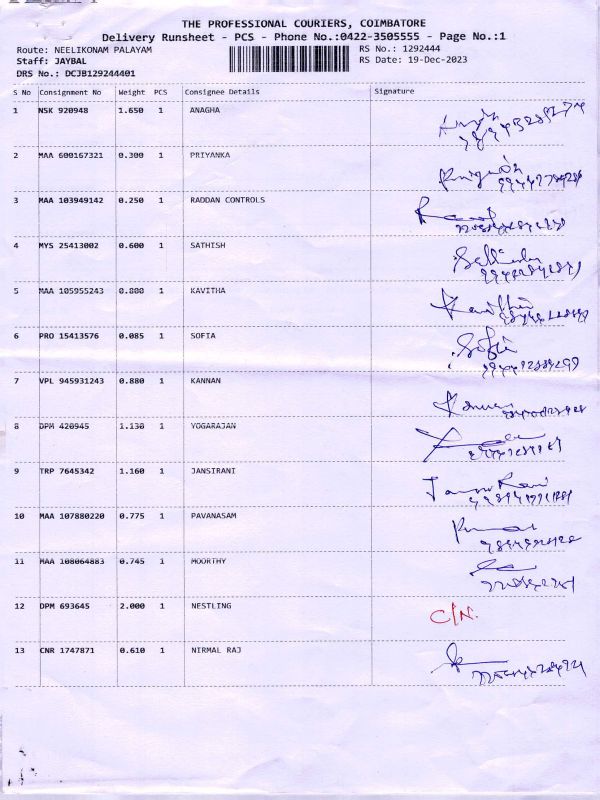 THE PROFESSIONAL COURIERS, COIMBATORE
Delivery Runsheet - PCS - Phone No.:0422-3505555 - Page No.:1
Route: NEELIKONAM PALAYAM RS No.: 1292444
Staff: JAYBAL RS Date: 19-Dec-2023
DRS No.: DCJB129244401
S No Consignment No Weight PCS Consignee Details Signature
1 NSK 920948 1.650 1 ANAGHA
2 MAA 600167321 0.300 1 PRIYANKA
3 MAA 103949142 0.250 1 RADDAN CONTROLS
4 MYS 25413002 0.600 1 SATHISH
5 MAA 105955243 0.800 1 KAVITHA
6 PRO 15413576 0.085 1 SOFIA Sofia
7 VPL 945931243 0.880 1 KANNAN
8 DPM 420945 1.130 1 YOGARAJAN
9 TRP 7645342 1.160 1 JANSIRANI
10 MAA 107880220 0.775 1 PAVANASAM
11 MAA 108064883 0.745 1 MOORTHY
12 DPM 693645 2.000 1 NESTLING C/N.
13 CNR 1747871 0.610 1 NIRMAL RAJ